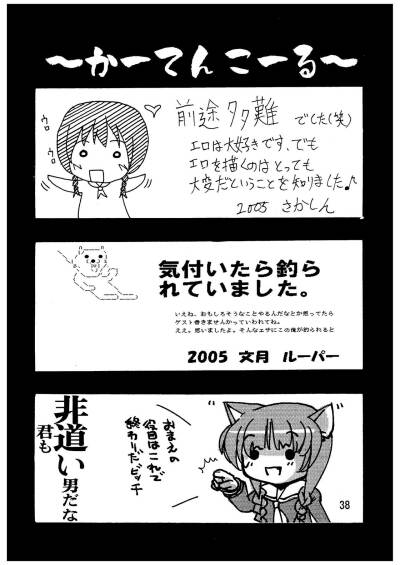 ～かーてんこーる～
前途多難 でした(笑)
エロは大好きです、でも
エロを描くのはとっても
大変だということを知りました♪
2005 さかしん
ウロ
ウロ
気付いたら釣ら
れていました。
いえね、おもしろそうなことやるんだなとか思ってたら
ゲスト書きませんかっていわれてね。
ええ。思いましたよ。そんなエサにこの俺が釣られると
2005 文月 ルーパー
おまえの
役目はこれで
終わりだビッチ
君も
非道い
男だな
38